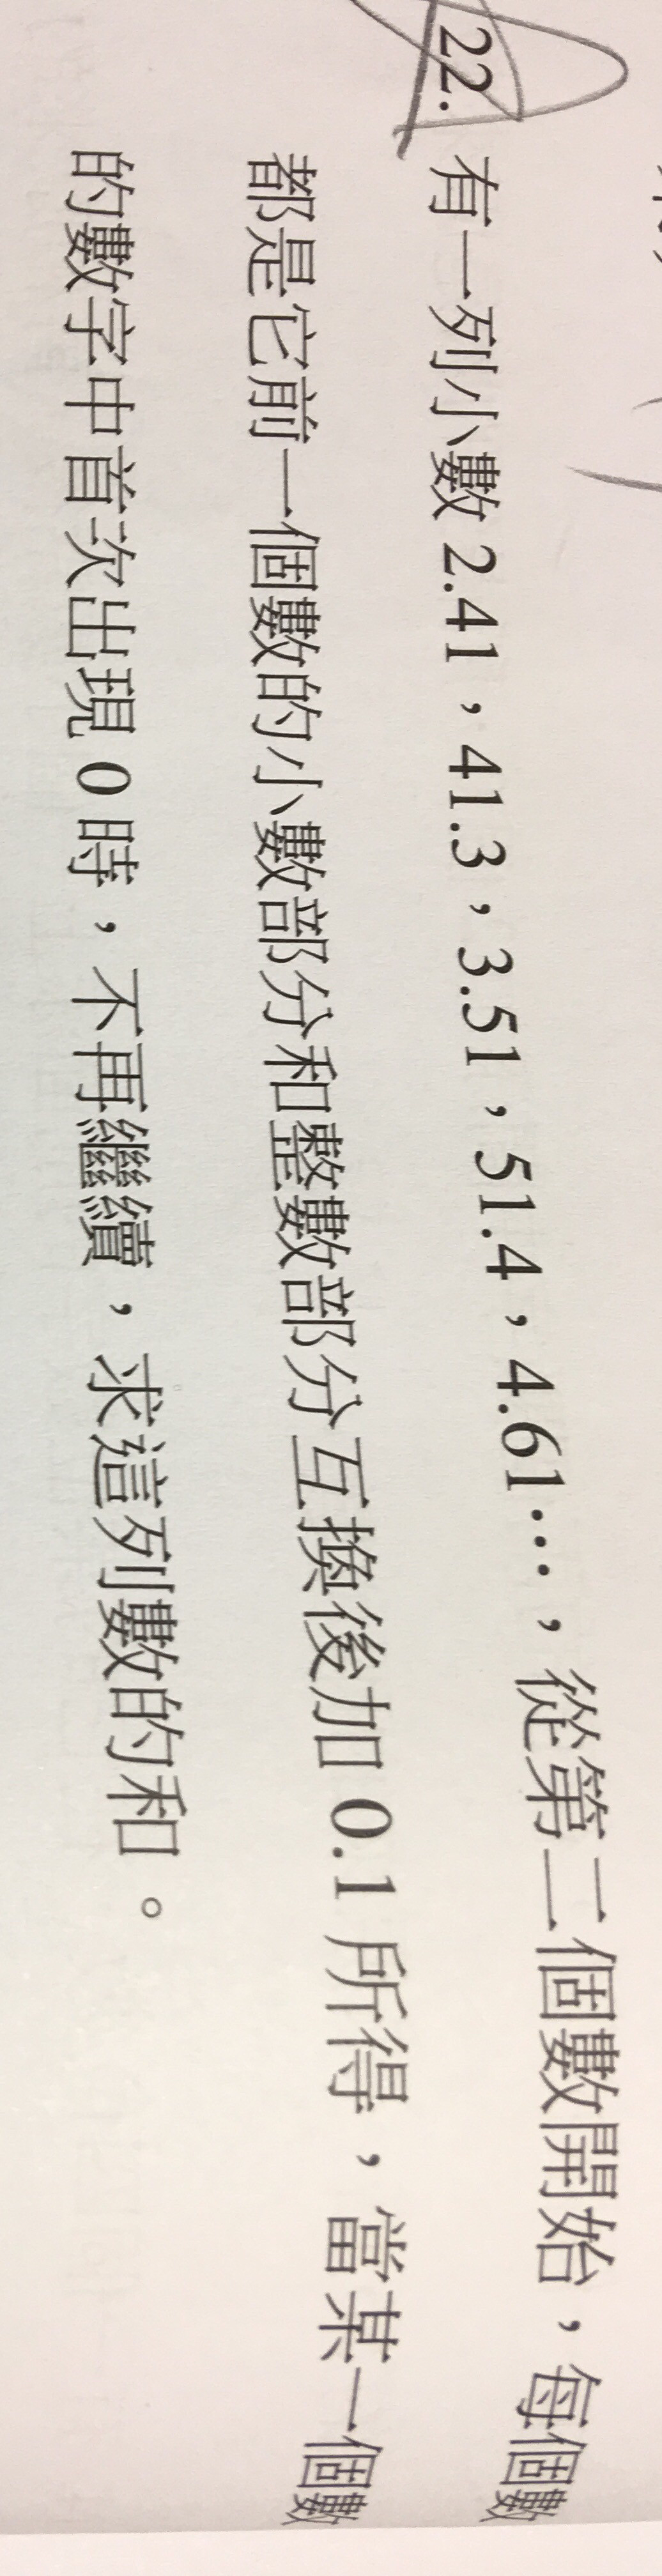 22. 有一列小數 2.41，41.3，3.51，51.4，4.61…，從第二個數開始，每個數
都是它前一個數的小數部分和整數部分互換後加 0.1 所得，當某一個數
的數字中首次出現 0 時，不再繼續，求這列數的和。